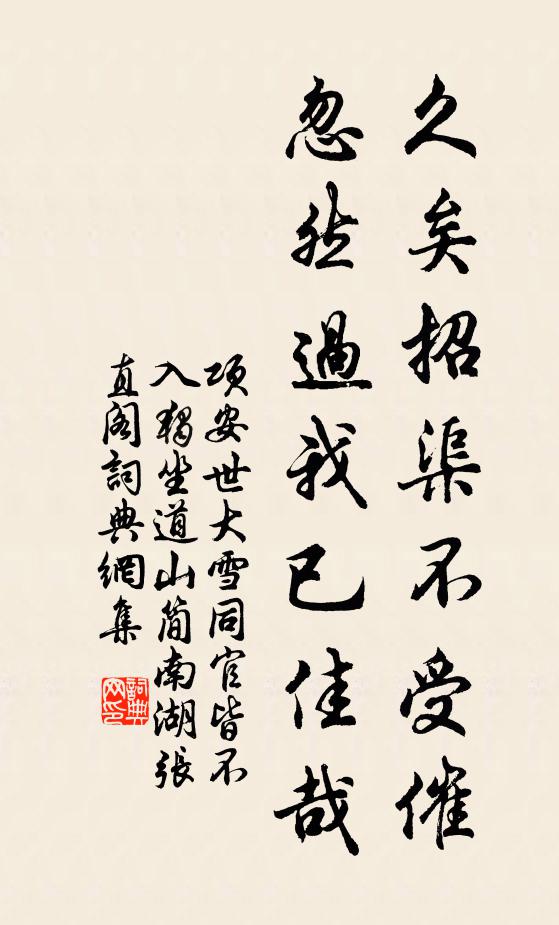 久矣招渠不受催
忽然過我已佳哉
項安世大雪同官皆不
入獨坐道山簡南湖張
直閣詞典網集
詞典
网印